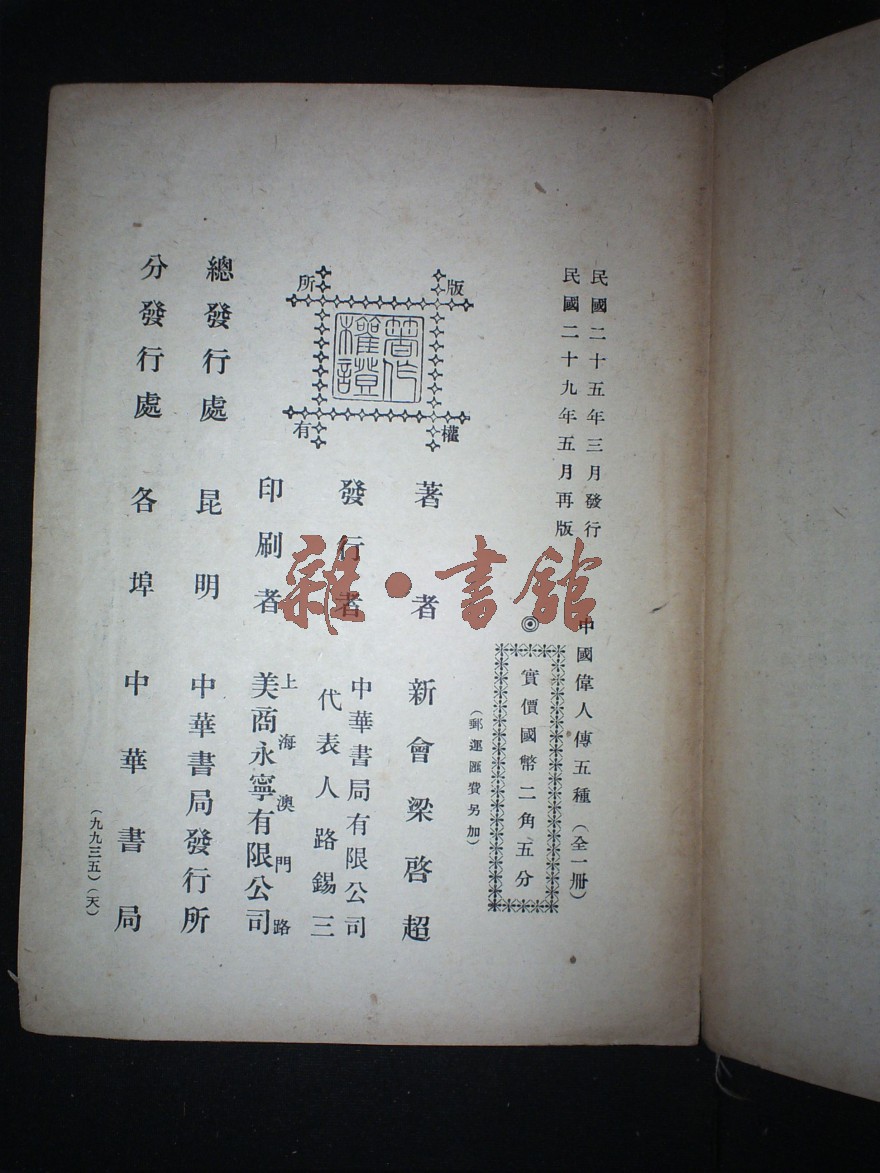 民國二十五年三月發行
民國二十九年五月再版
中國偉人傳五種(全一冊)
◎實價國幣二角五分
(郵運匯費另加)
版權所有
著作權證
著者 新會梁啓超
發行者 中華書局有限公司
代表人路錫三
印刷者 上海澳門路
美商永寧有限公司
總發行處 昆明 中華書局發行所
分發行處 各埠 中華書局
(九九三五)(天)
雜·書館